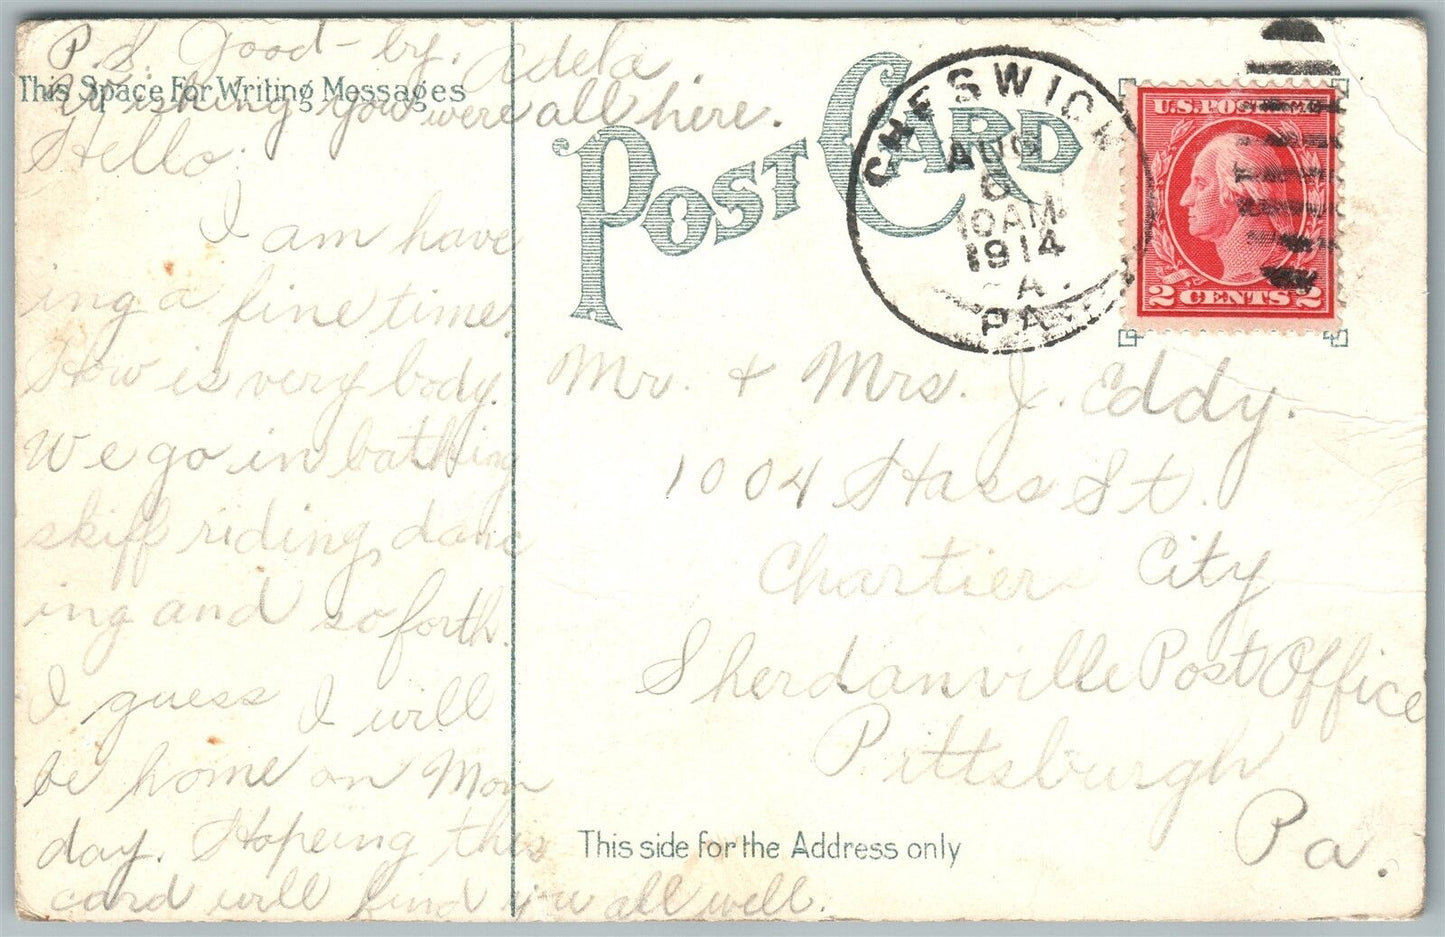 P.S. Good-by. Adela.
This Space For Writing Messages
Wishing you were all here.
Hello.
I am have
ing a fine time.
How is very body.
We go in bathing
skiff riding, danc
ing and so forth.
I guess I will
be home on Mon
day. Hopeing this
card will find you all well.
POST CARD
CHESWICK
AUG
6
10 AM
1914
A.
PA.
U.S. POSTAGE
2 CENTS 2
Mr. + Mrs. J. Eddy.
1004 Hass St.
Chartier City
Sherdanville Post Office
Pittsburgh
Pa.
This side for the Address only